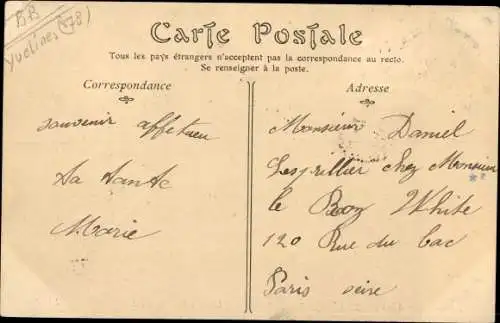 BB
Yvelines (78)
Carte Postale
Tous les pays étrangers n'acceptent pas la correspondance au recto.
Se renseigner à la poste.
Correspondance
souvenir affetueu
Sa tante
Marie
Adresse
Monsieur Daniel
Lesprillier Chez Monsieur
le Booz White
120 Rue du bac
Paris seine